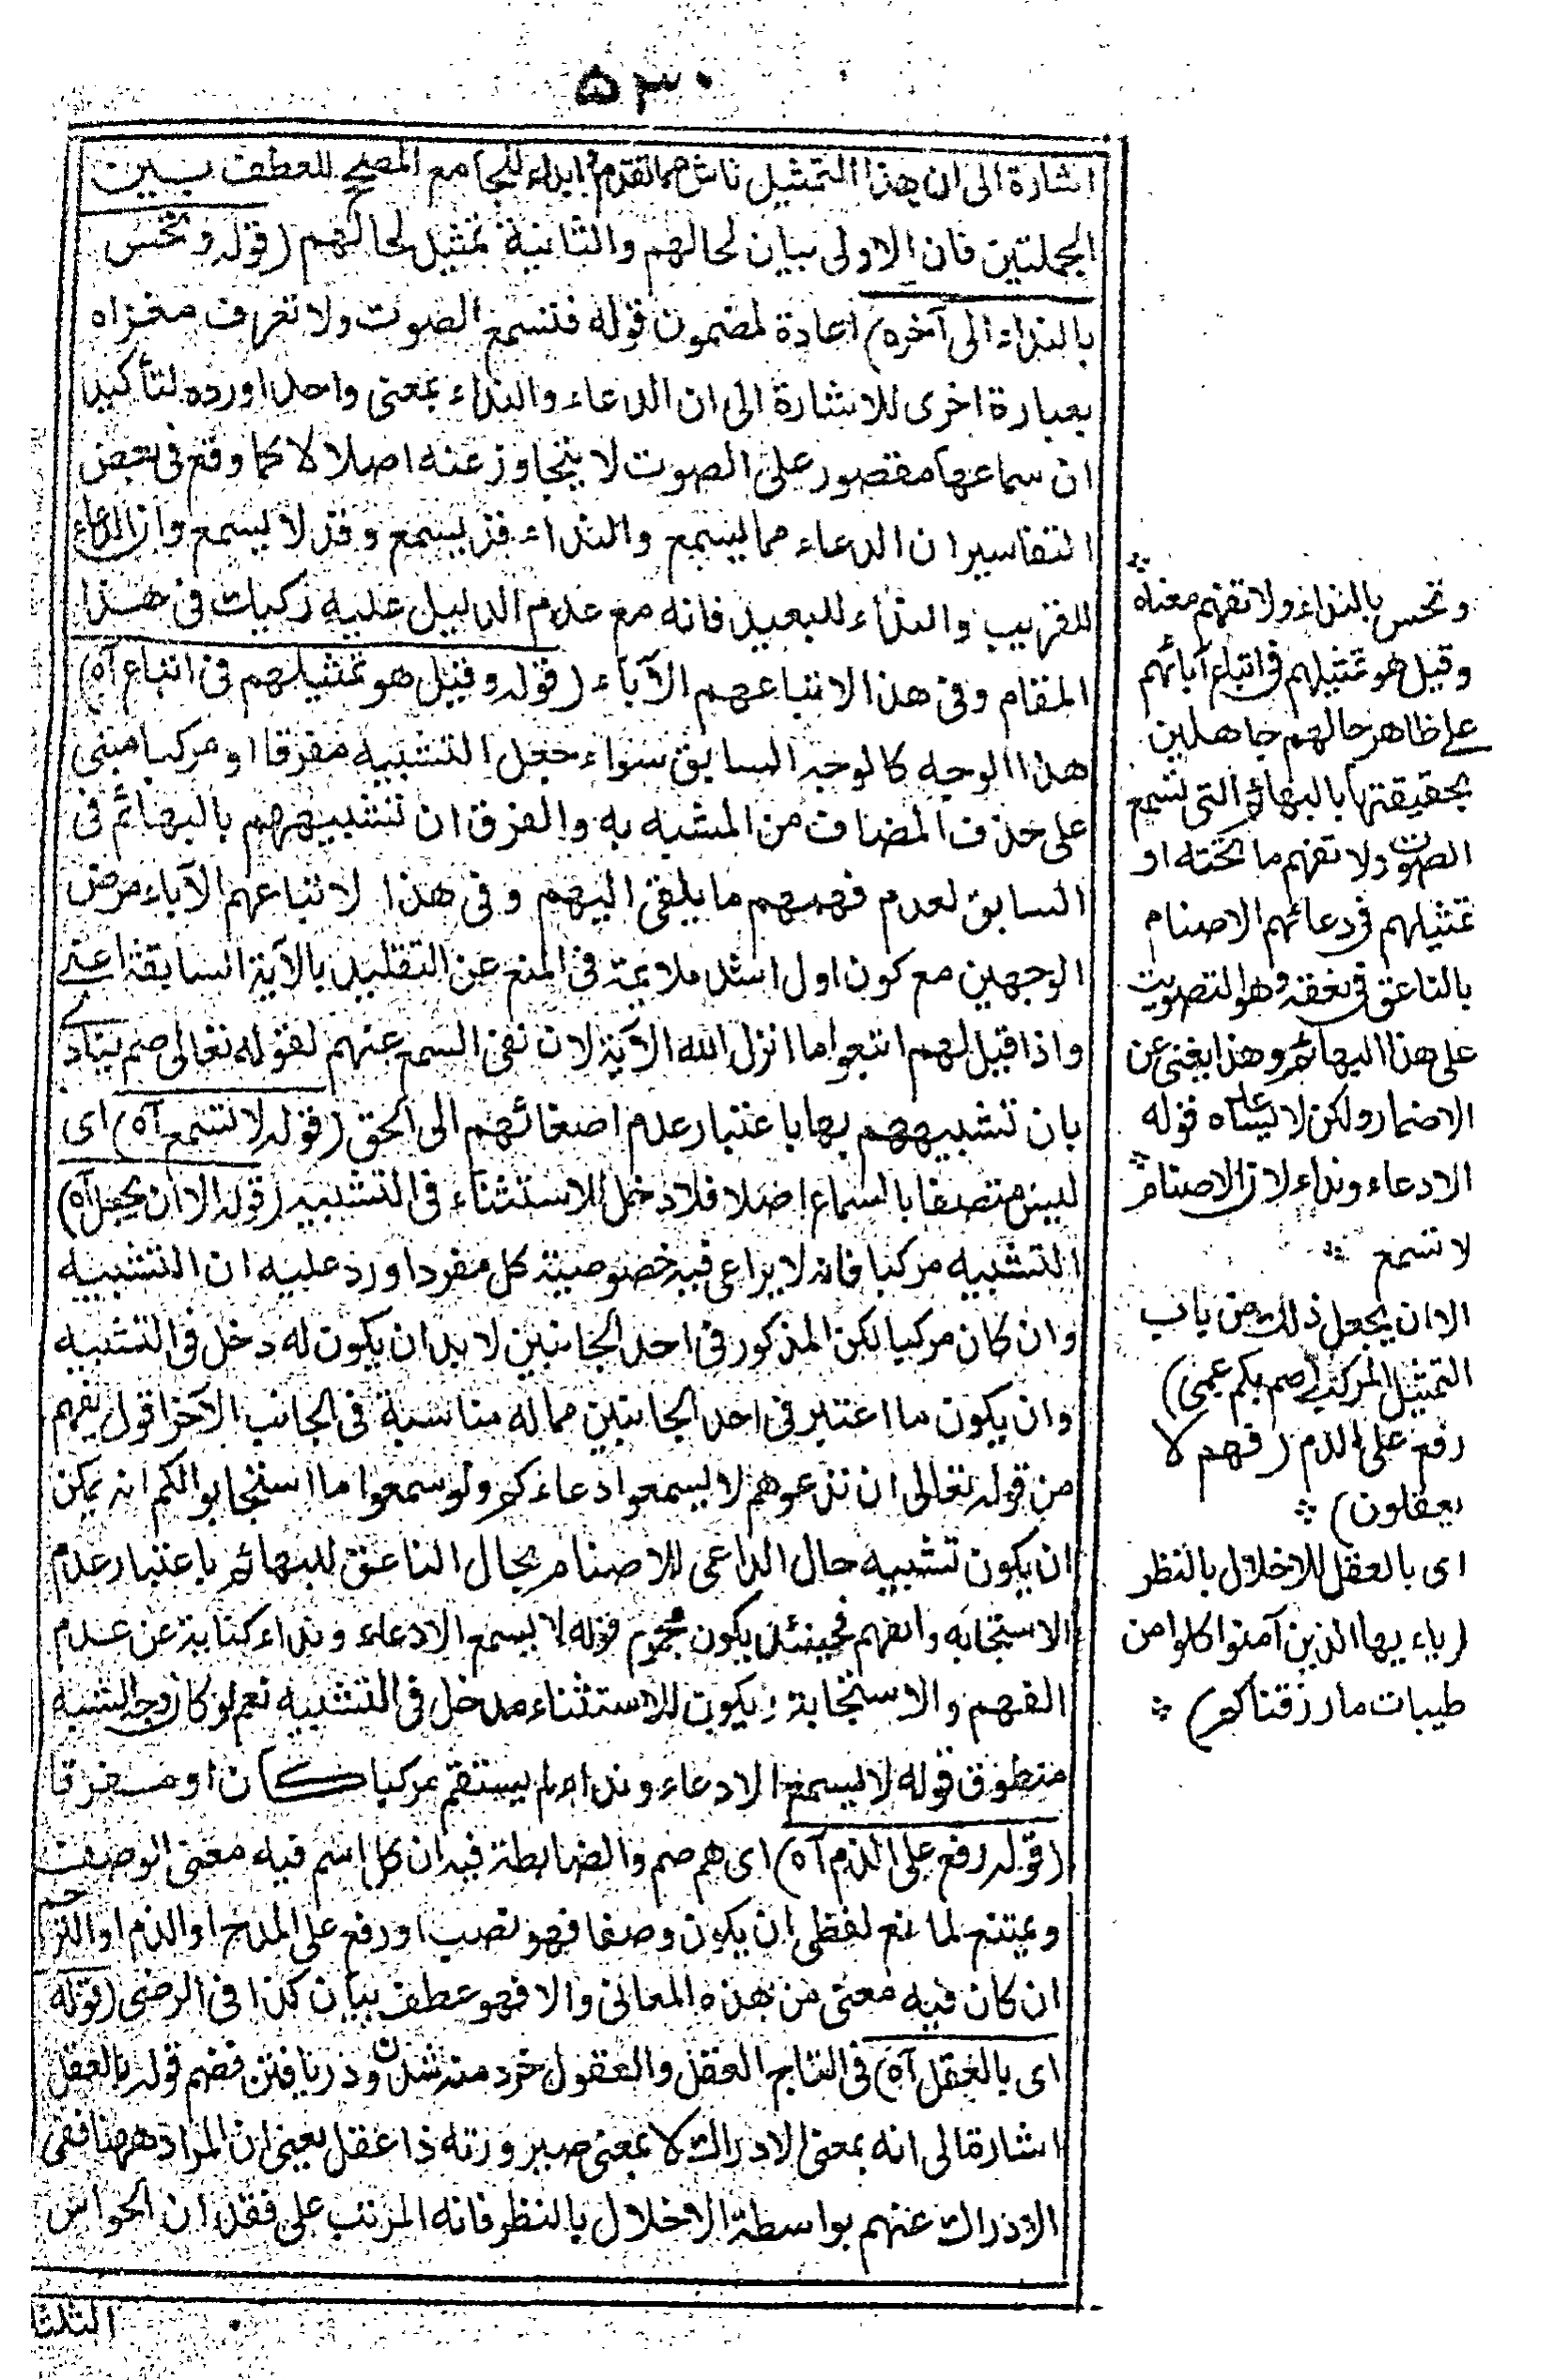 ٥٣٠
اشارة الى ان هذا التمثيل ناش مما تقدم ابداء للجامع المصحح للعطف بين
الجملتين فان الاولى بيان لحالهم والثانية تمثيل لحالهم (قوله وتحس
بالنداء الى آخره) اعادة لمضمون قوله فتسمع الصوت ولا تعرف مغزاه
بعبارة اخرى للاشارة الى ان الدعاء والنداء بمعنى واحد اورده لتأكيد
ان سماعها مقصور على الصوت لا يتجاوز عنه اصلا لا كما وقع فى بعض
التفاسير ان الدعاء مما يسمع والنداء قد يسمع وقد لا يسمع وان الدعاء
للقريب والنداء للبعيد فانه مع عدم الدليل عليه ركيك فى هذا
المقام وفى هذا الاتباعهم الآباء (قوله وقيل هو تمثيلهم فى اتباع آه)
هذا الوجه كالوجه السابق سواء جعل التشبيه مفرقا او مركبا مبنى
على حذف المضاف من المشبه به والفرق ان تشبيههم بالبهائم فى
السابق لعدم فهمهم ما يلقى اليهم وفى هذا لاتباعهم الآباء مرض
الوجهين مع كون اول اشد ملايمة فى المنع عن التقليد بالآية السابقة اعنى
واذا قيل لهم اتبعوا ما انزل الله الآية لان نفى السمع عنهم لقوله تعالى صم ينادى
بان تشبيههم بها باعتبار عدم اصغائهم الى الحق (قوله لا تسمع آه) اى
ليس متصفا بالسماع اصلا فلا دخل للاستثناء فى التشبيه (قوله الا ان يجعل آه)
التشبيه مركبا فانه لا يراعى فيه خصوصية كل مفرد اورد عليه ان التشبيه
وان كان مركبا لكن المذكور فى احد الجانبين لا بد ان يكون له دخل فى التشبيه
وان يكون ما اعتبر فى احد الجانبين مما له مناسبة فى الجانب الآخر اقول يفهم
من قوله تعالى ان تدعوهم لا يسمعوا دعاءكم ولو سمعوا ما استجابوا لكم انه يمكن
ان يكون تشبيه حال الداعى للاصنام بحال الناعق للبهائم باعتبار عدم
الاستجابه والفهم فحينئذ يكون مجموع قوله لا يسمع الا دعاء ونداء كناية عن عدم
الفهم والاستجابة ويكون للاستثناء مدخل فى التشبيه نعم لو كان وجه الشبه
منطوق قوله لا يسمع الا دعاء ونداء لم يستقم مركبا كان او مفرقا
(قوله رفع على الذم آه) اى هم صم والضابطة فيه ان كل اسم فيه معنى الوصف
ويمتنع لمانع لفظى ان يكون وصفا فهو نصب او رفع على المدح او الذم او الترحم
ان كان فيه معنى من هذه المعانى والا فهو عطف بيان كذا فى الرضى (قوله
اى بالعقل آه) فى التاج العقل والعقول خردمند شدن ودريافتن فضم قوله بالعقل
اشارة الى انه بمعنى الادراك لا بمعنى صيرورته ذا عقل يعنى ان المراد ههنا نفى
الادراك عنهم بواسطة الاخلال بالنظر فانه المرتب على فقدان الحواس
الثلثة
وتحس بالنداء ولا تفهم معناه
وقيل هو تمثيلهم فى اتباع آبائهم
على ظاهر حالهم جاهلين
بحقيقتها بالبهائم التى تسمع
الصوت ولا تفهم ما تحته او
تمثيلهم فى دعائهم الاصنام
بالناعق فى نعقه وهو التصويت
على هذا البهائم وهذا يغنى عن
الاضمار ولكن لا يساعده قوله
الا دعاء ونداء لان الاصنام
لا تسمع
الا ان يجعل ذلك من باب
التمثيل المركب (صم بكم عمى)
رفع على الذم (فهم لا
يعقلون)
اى بالعقل للاخلال بالنظر
(ياء يها الذين آمنوا كلوا من
طيبات ما رزقناكم)